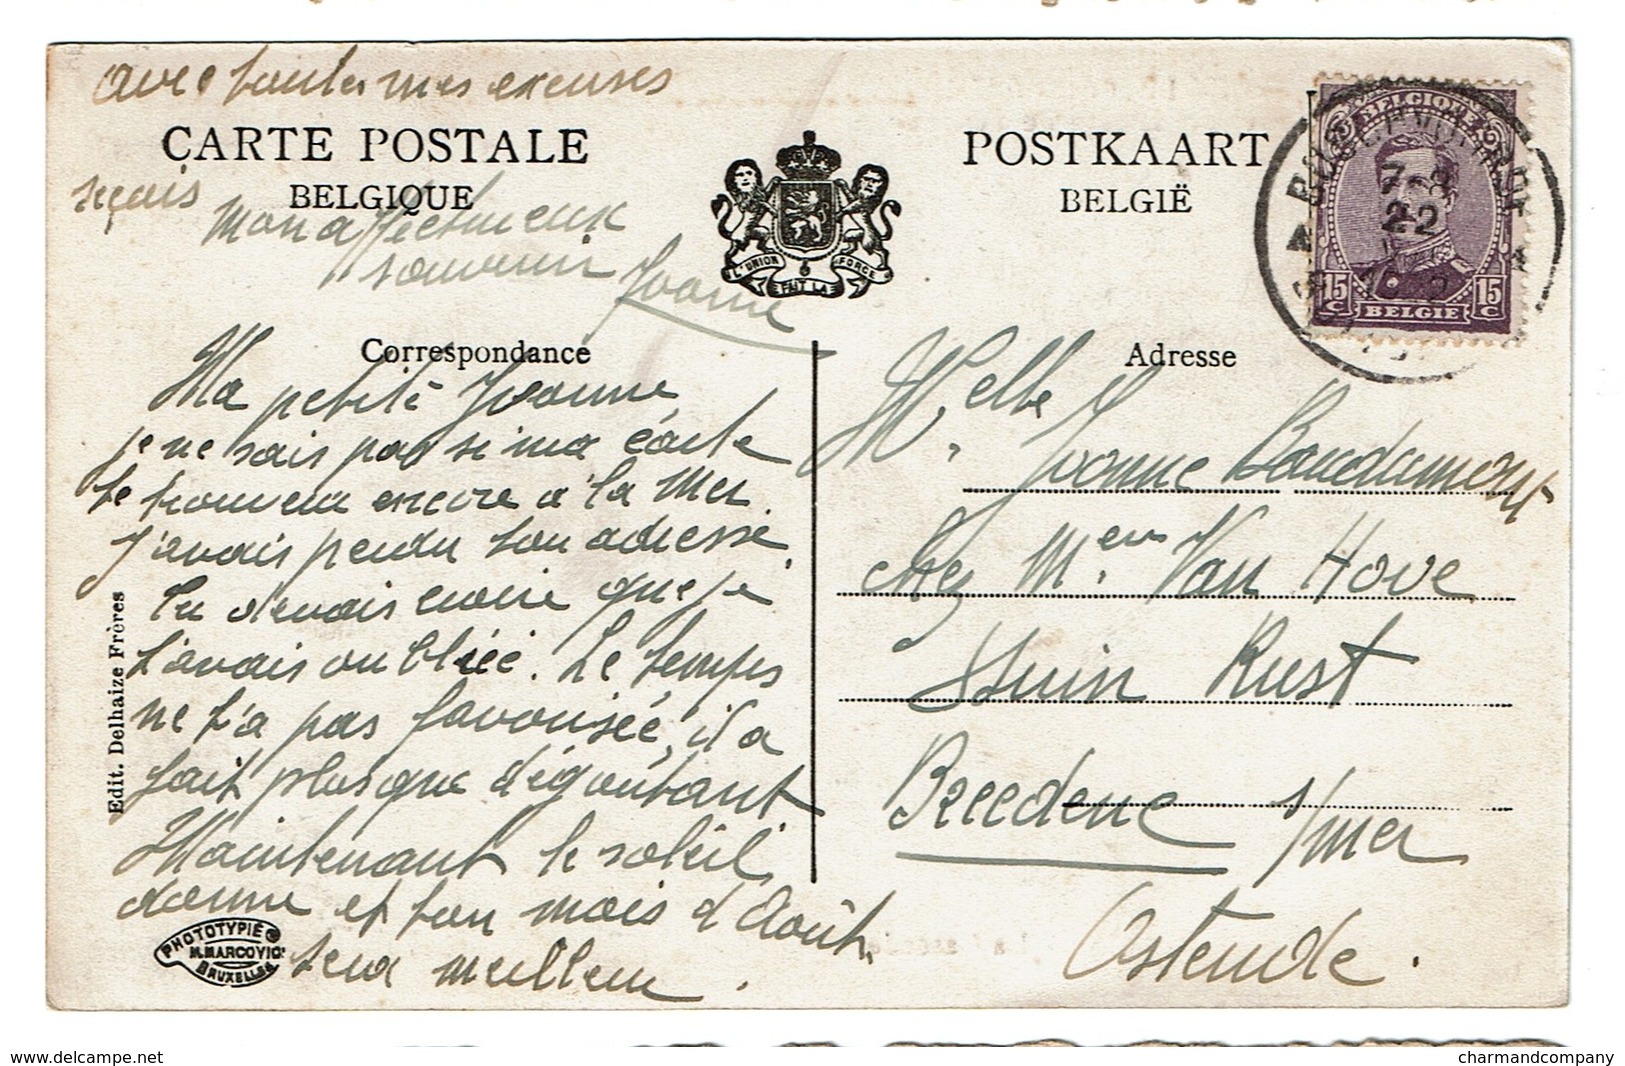 avec toutes mes excuses
CARTE POSTALE
BELGIQUE
POSTKAART
BELGIË
L'UNION FAIT LA FORCE
BELGIQUE
7 - 8
22
15 C
15 C
BELGIE
reçois
Mon affectueux
souvenir
Yvonne
Correspondance
Adresse
Ma petite Yvonne
je ne sais pas si ma carte
te trouvera encore à la mer.
J'avais perdu ton adresse.
Tu devais croire que je
t'avais oubliée. Le temps
ne t'a pas favorisée, il a
fait plus que dégoûtant
Maintenant le soleil
donne et ton mois d'Août
sera meilleur.
M.elle
Yvonne Baudamont
chez M.eur Van Hove
Duin Rust
Breedene s/mer
Ostende.
Edit. Delhaize Frères
PHOTOTYPIE
M. MARCOVICI
BRUXELLES
www.delcampe.net
charmandcompany